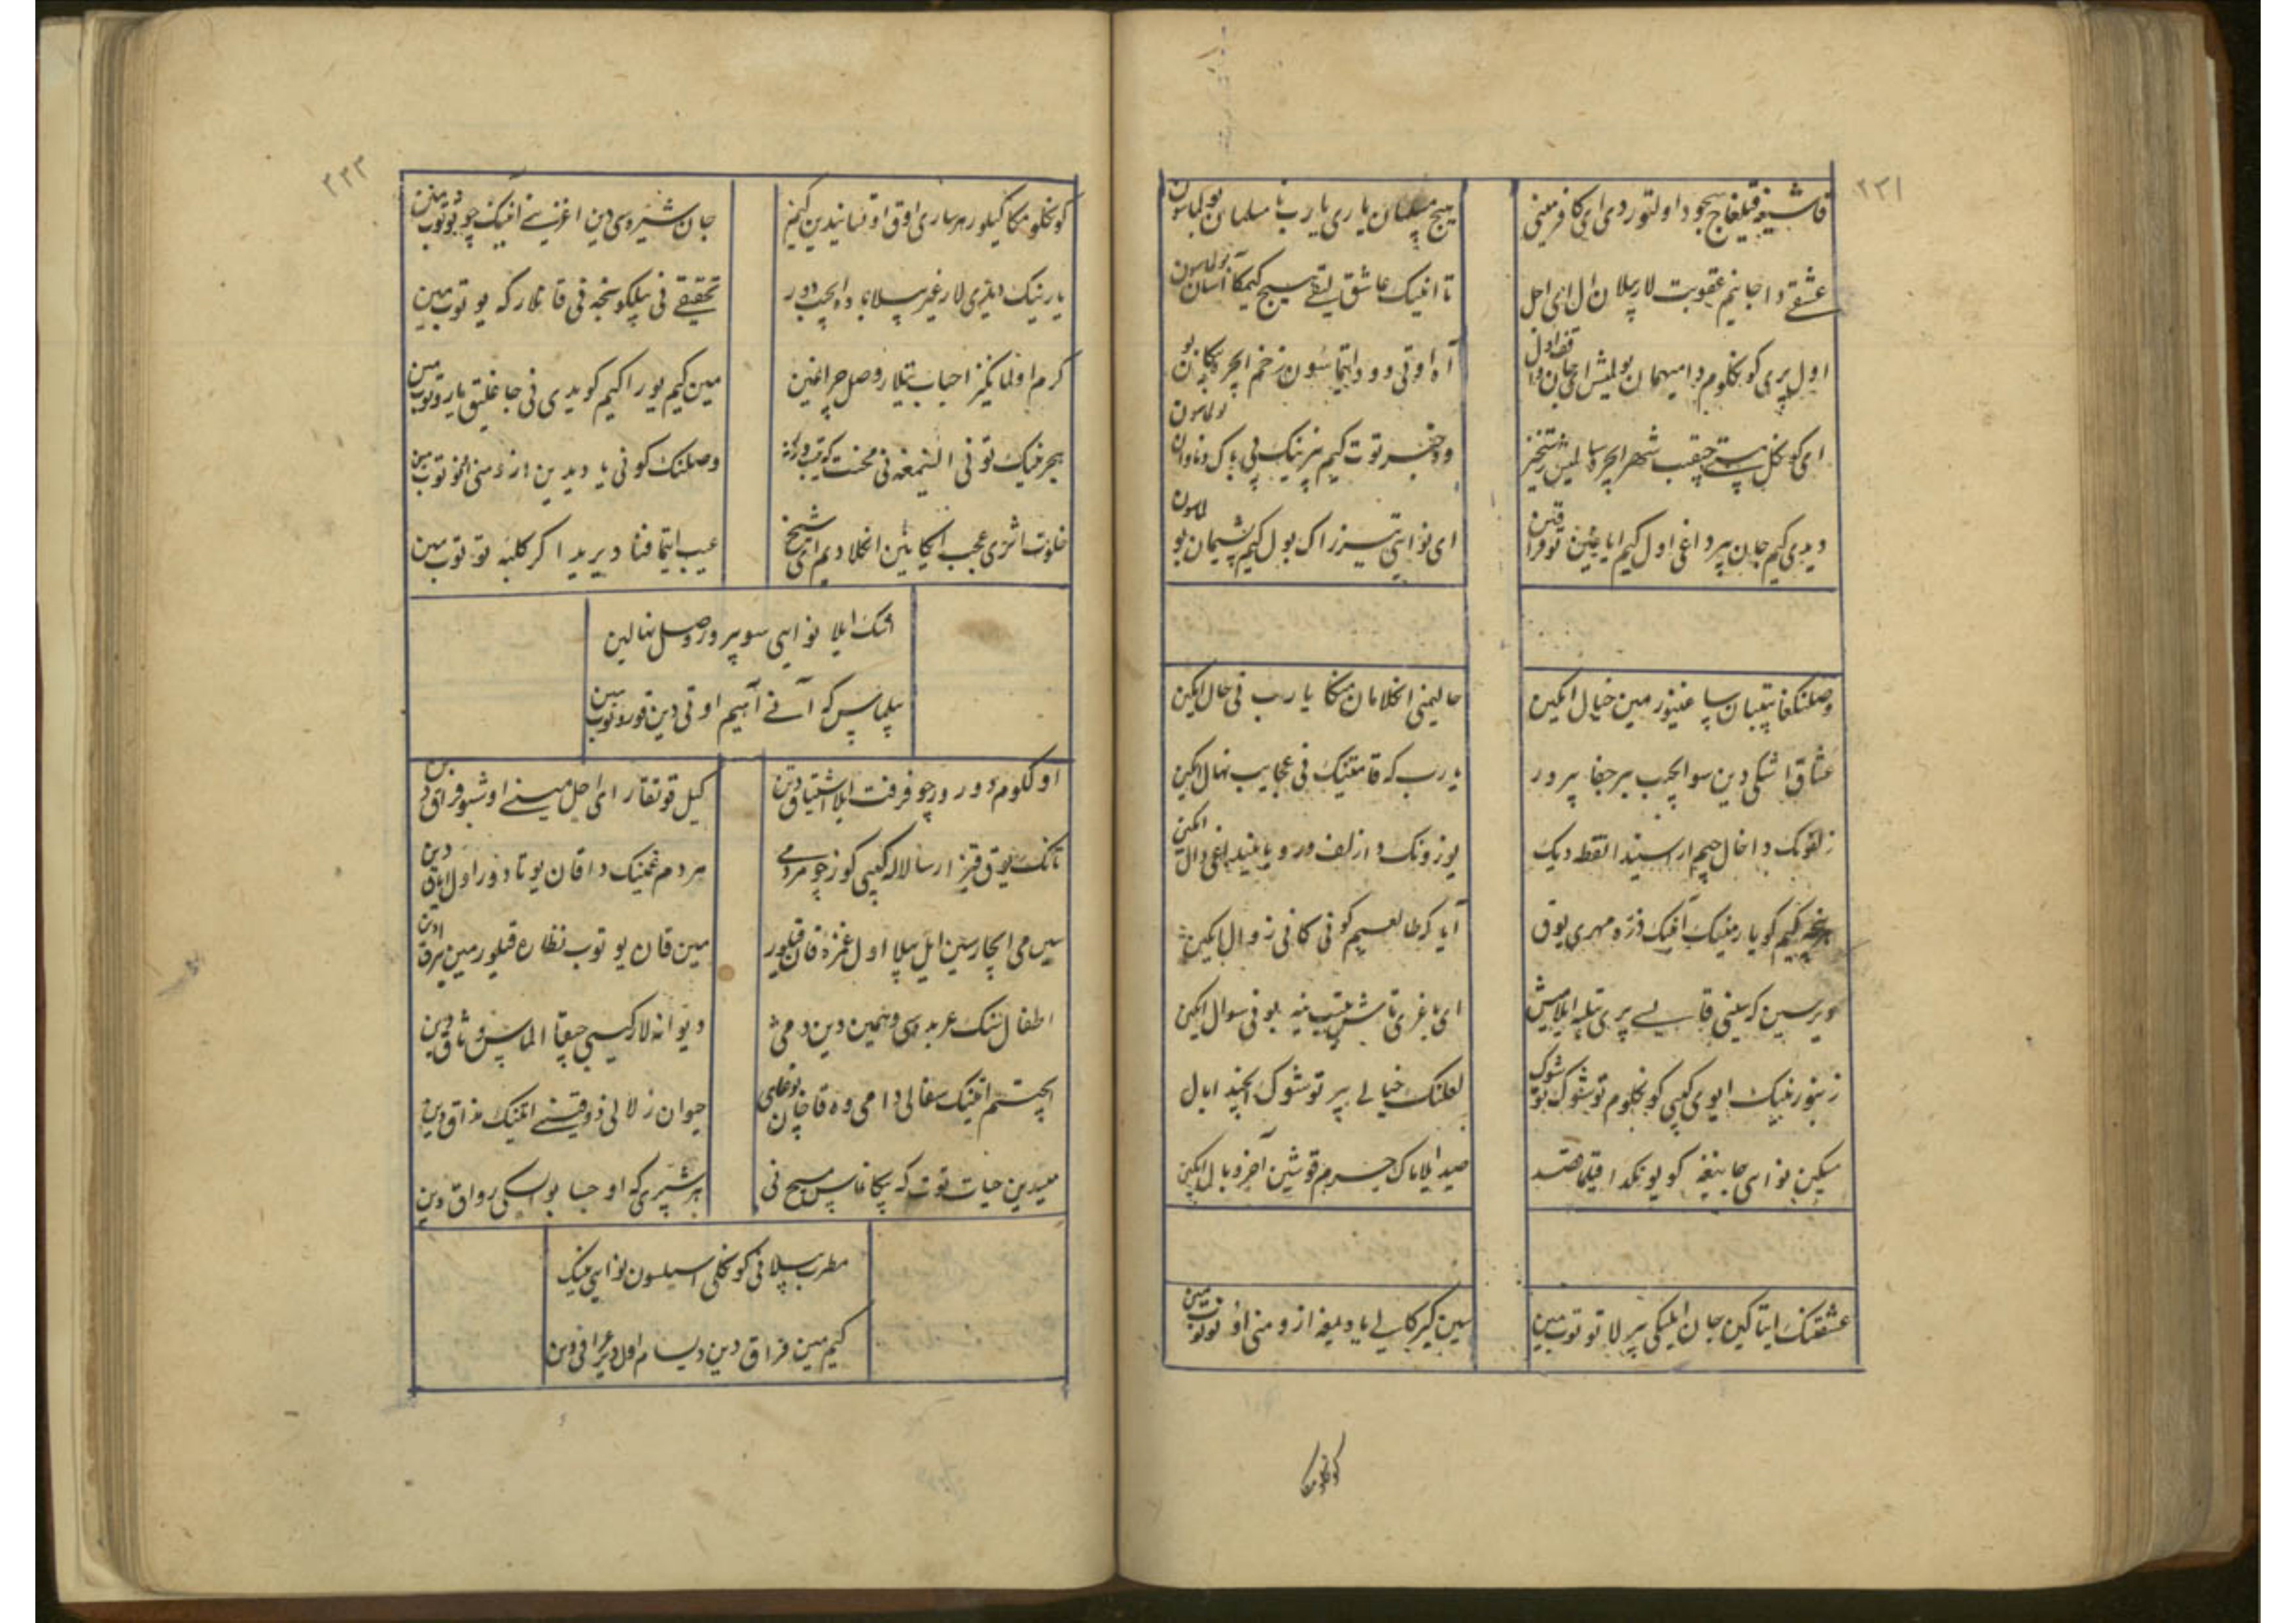 ۲۳۱
قاشیغه قیلغاچ سجود اولتوردی ای کافر مینی
هیچ مسلمان یاری یارب نا مسلمان بولماسون
عشقی دا جانیم عقوبت لار بیلان ال ای اجل
تا انینک عاشق لیقی هیچ کیمکا آسان بولماسون
اول پری کونکلوم دا میهمان بولمیش ای جان
آه اوتی دود ایتماسون زخم ایچره پیکان
بولماسون
ای کونکل مست چیقیب شهر ایچره سالمیش رستخیز
ودخبر توت کیم بزنینک بی باک ونادان
بولماسون
دیدی کیم جان بیر داغی اول کیم ایاغین توفراقین
ای نوایی تیزراک بول کیم پشیمان بو
لماسون
وصلینکغا یتیبان ساغینور مین خیال ایکین
حالیمنی انکلامان منکا یارب نی حال ایکین
عشاق اشکی دین سو ایچیب بیر جفا بیرور
یارب که قامتینک نی عجایب نهال ایکین
زلفونک دا خال جیم اراسیندا نقطه دیک
یوزونک دا زلف دور و یا بنده داغی دال
ایکین
کیم کویار مینینک آنینک ذره مهری یوق
آیا که طالعیم کونی کا نی زوال ایکین
دیرسین که مینی قایسی پری تیلبه ایلامیش
ای باغری تاش بو نی سوال ایکین
زنبورنینک ایوی کیبی کونکلوم توشوک توشوک
لعلینک خیالی بیر توشوک ایچیندا بال
مسکین نوایی جانیغه کویونکدا قیلما قصد
صید ایلاماک حرم قوشین آخر وبال ایکین
عشقینک ایتاکین جان ایلیکی بیرلا توتوب مین
سین کیرکالی یادیمغه اوزومنی اونوتوب
مین
کونکلومکا
۲۳۳
کونکلومکا کیلور هر ساری اوق اوقسانیدین کیم
جان شیره سی دین اغزینی آنینک چوچوتوب مین
یارنینک دیلری لار غیر بیلا باده ایچیب دور
تحقیقی نی بیلکونچه نی قانلار که یوتوب مین
کرم اولمانکیز احباب تیلار وصل چراغین
مین کیم یوراکیم کویدی نی جاغلیق یاروتوب
مین
هجرینک تونی النیمغه نی محنت که کیتورکای
وصلینک کونی یادیدین اوزومنی اونوتوب مین
خلوت اثری عجب ایکانین انکلادیم ای شیخ
عیب ایتما فنا دیریدا کر کلبه توتوب مین
اشک ایلا نوایی سو بیرور وصل نهالین
بیلماس که آنی آهیم اوتی دین قوروتوب
مین
اولکوم دورور چو فرقت ایلا اشتیاق دین
کیل قوتقار ای اجل مینی اوشبو فراق دین
تانک یوق قیزارسا لاله کیبی کوز چو مردمی
هر دم غمینک دا قان یوتادور اول ایاق
دین
سین می ایچارسین ایل بیلا اول غمزه قان قیلور
مین قان یوتوب نظاره قیلور مین یراق
دین
اطفال نینک عربده سی وهمین دین دمی
دیوانه لار کیبی چیقا الماس وثاق دین
ایچتیم ایتینک سفالی دا می وه قاچان بولغای
حیوان زلالی ذوقینی ایتینک مذاق دین
میندین حیات توت که بیکانماس مسیح نی
هر شپره که اوچسا بو ایسکی رواق دین
مطرب بیلا نی کونکلی اسیلسون نوایی نینک
کیم مین فراق دین دیسام اول دیر عراق دین